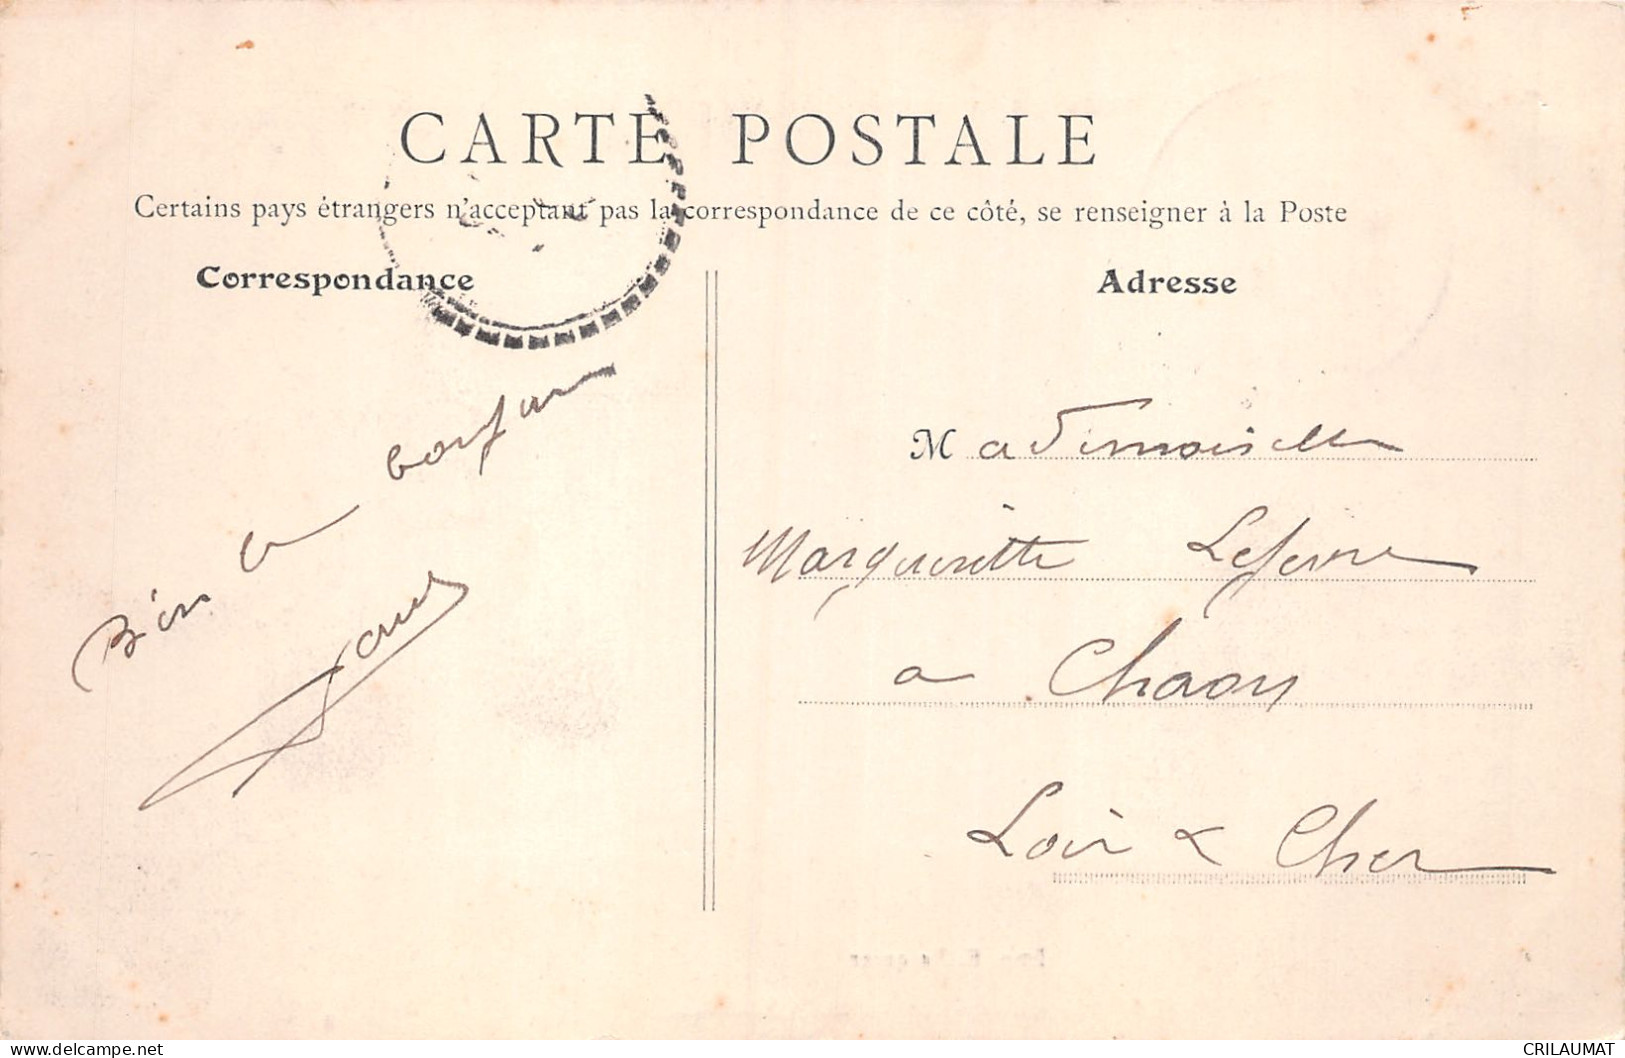 CARTE POSTALE
Certains pays étrangers n'acceptant pas la correspondance de ce côté, se renseigner à la Poste
Correspondance
Adresse
Mademoiselle
Marguerite Lefevre
a Chaon
Loir & Cher
Bien le bonjour
delcampe.net
CRILAUMAT